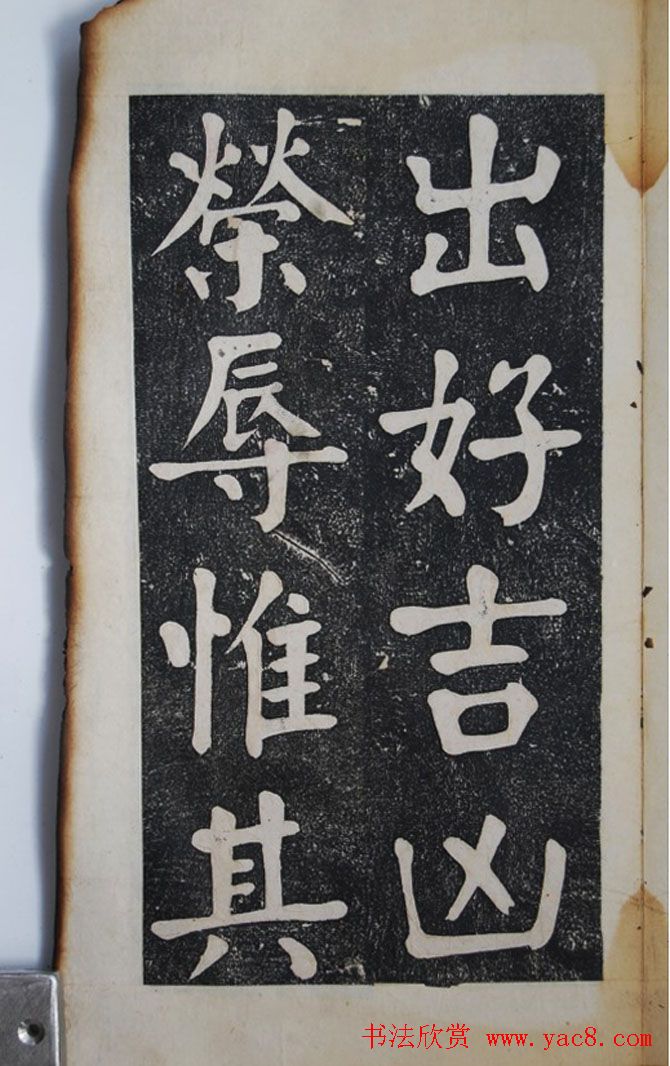 出好吉凶
榮辱惟其
书法欣赏 www.yac8.com